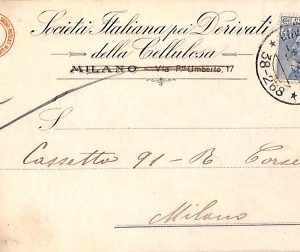 Società Italiana pei Derivati
della Cellulosa
MILANO — Via Pe Umberto, 17
38-268
S.
Cassetto 91-R Corse
Milano